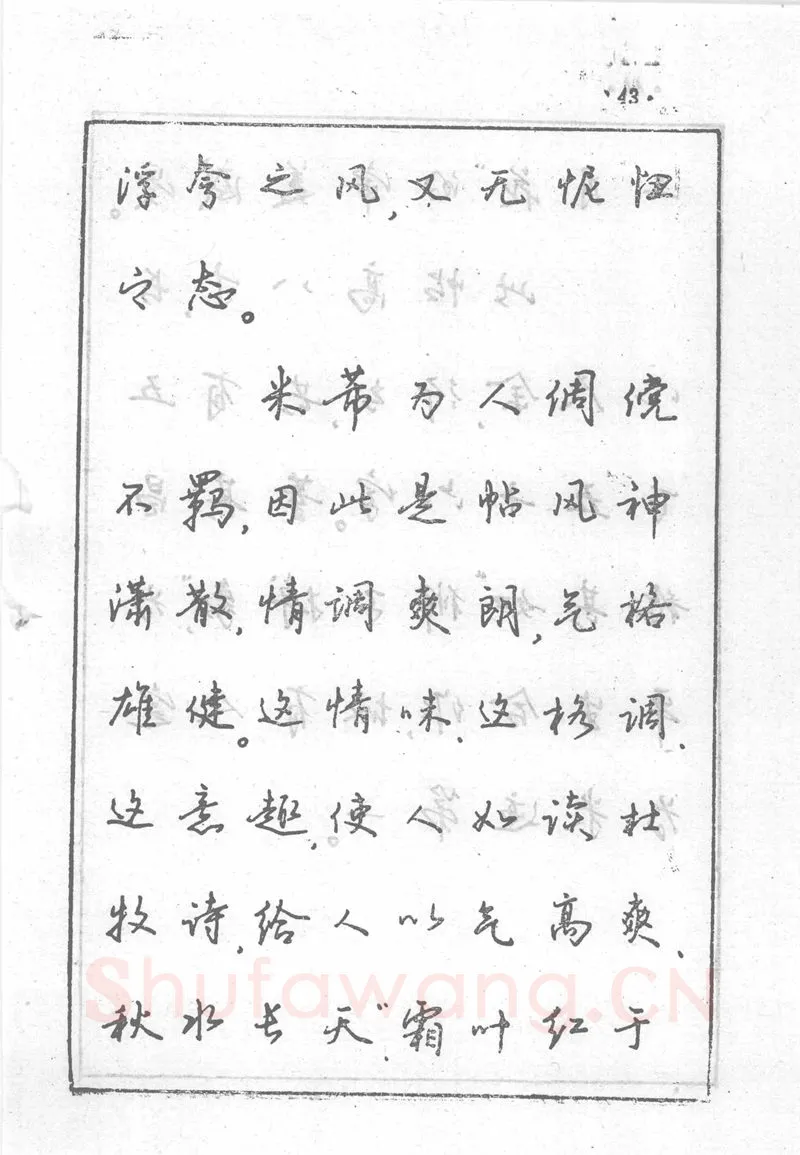 ·43·
浮夸之风,又无忸怩
之态。
米芾为人倜傥
不羁,因此是帖风神
潇散,情调爽朗,气格
雄健。这情味、这格调、
这意趣,使人如读杜
牧诗,给人以气高爽、
秋水长天"、霜叶红于
Shufawang.CN